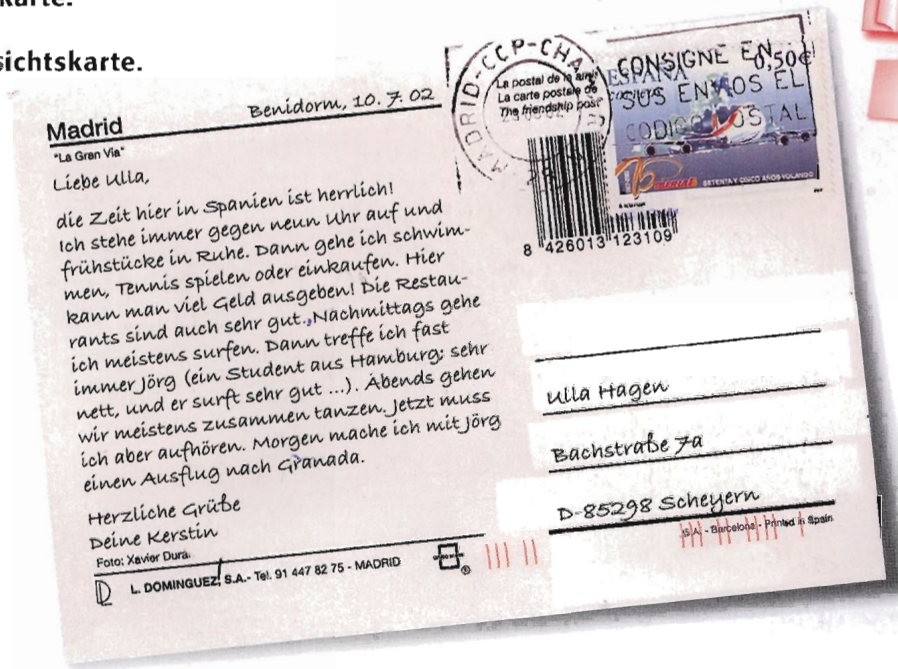 karte.
sichtskarte.
Madrid
"La Gran Via"
Benidorm, 10. 7. 02
Liebe Ulla,
die Zeit hier in Spanien ist herrlich!
Ich stehe immer gegen neun Uhr auf und
frühstücke in Ruhe. Dann gehe ich schwim-
men, Tennis spielen oder einkaufen. Hier
kann man viel Geld ausgeben! Die Restau-
rants sind auch sehr gut. Nachmittags gehe
ich meistens surfen. Dann treffe ich fast
immer Jörg (ein Student aus Hamburg; sehr
nett, und er surft sehr gut ...). Abends gehen
wir meistens zusammen tanzen. Jetzt muss
ich aber aufhören. Morgen mache ich mit Jörg
einen Ausflug nach Granada.
Herzliche Grüße
Deine Kerstin
Foto: Xavier Durá.
L. DOMINGUEZ, S.A.- Tel. 91 447 82 75 - MADRID
MADRID-CCP-CHA
La postal de la
La carte postale de
The friendship post
CONSIGNE EN
SUS ENVIOS EL
CODIGO POSTAL
ESPAÑA
0,50€
75
SETENTA Y CINCO AÑOS VOLANDO
8 426013 123109
Ulla Hagen
Bachstraße 7a
D-85298 Scheyern
S.A. - Barcelona - Printed in Spain